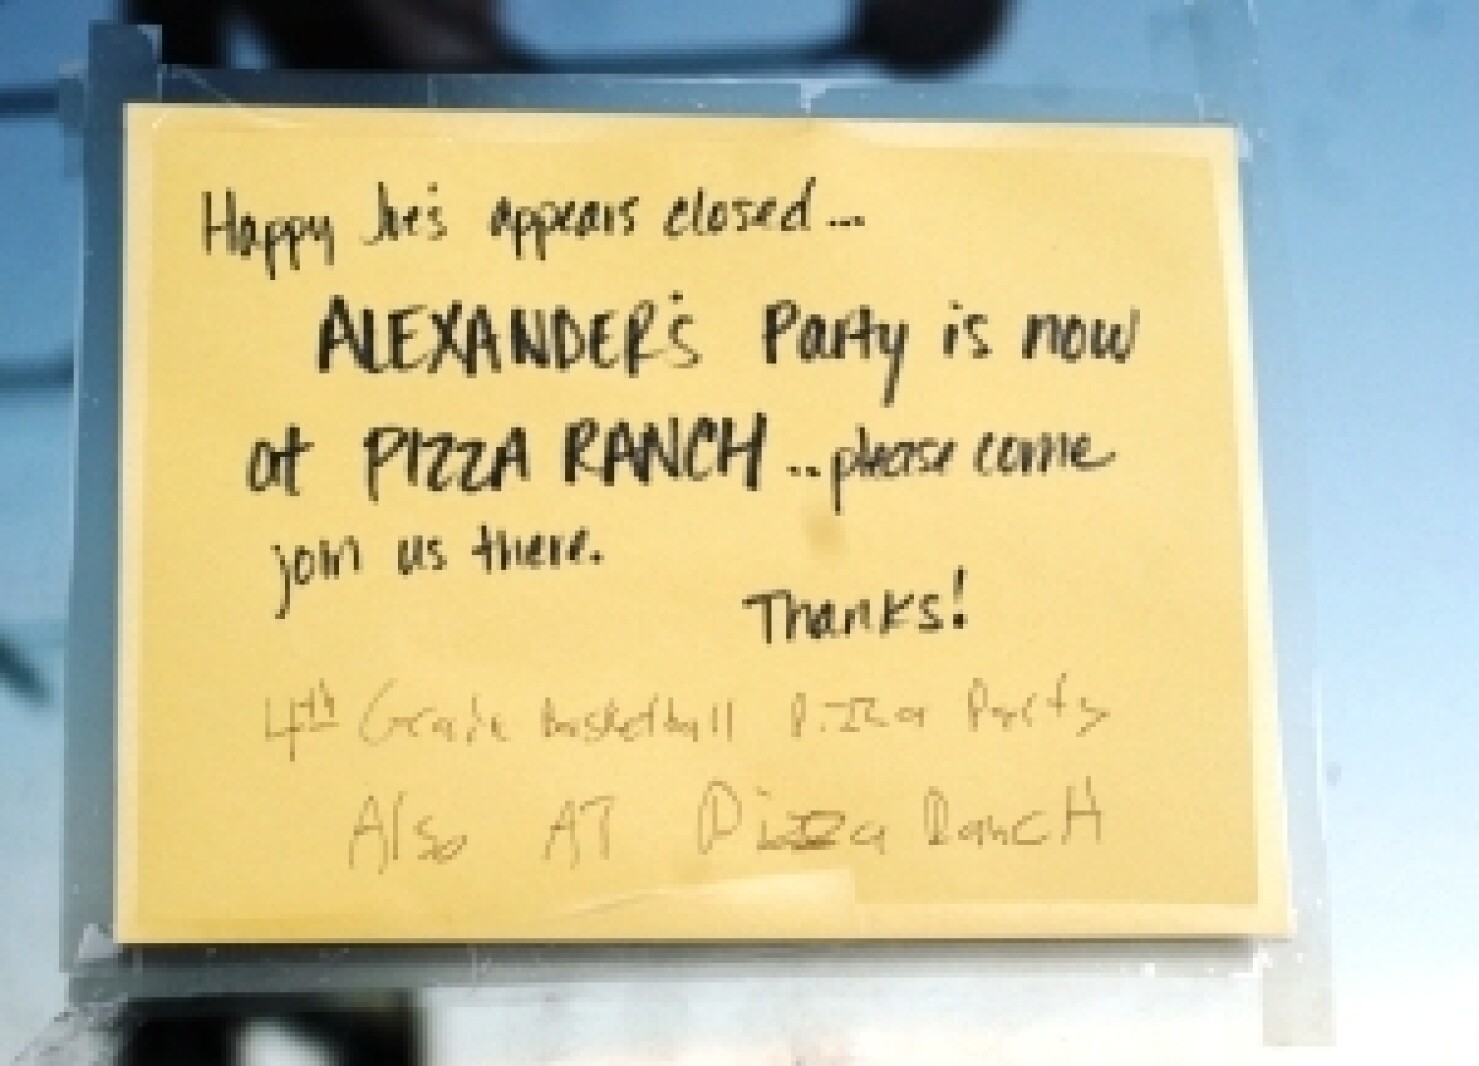 Happy Joe's appears closed...
ALEXANDER's Party is now
at PIZZA RANCH...please come
join us there.
Thanks!
4th Grade Basketball Pizza Party
Also AT Pizza RancH